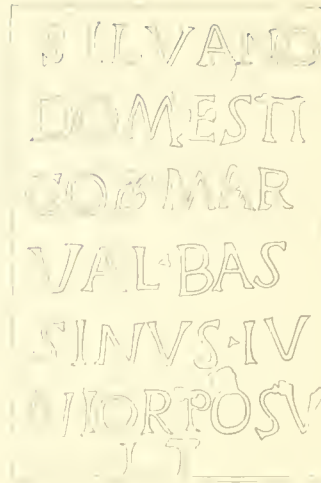 SILVANO
DOMESTI
CO B MAR
VAL·BAS
SINVS·IV
POSV
IT